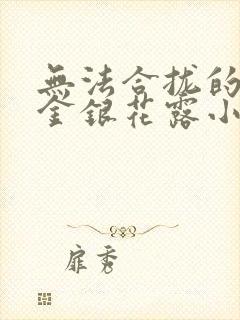 無法合拢的
金銀花露小
扉秀